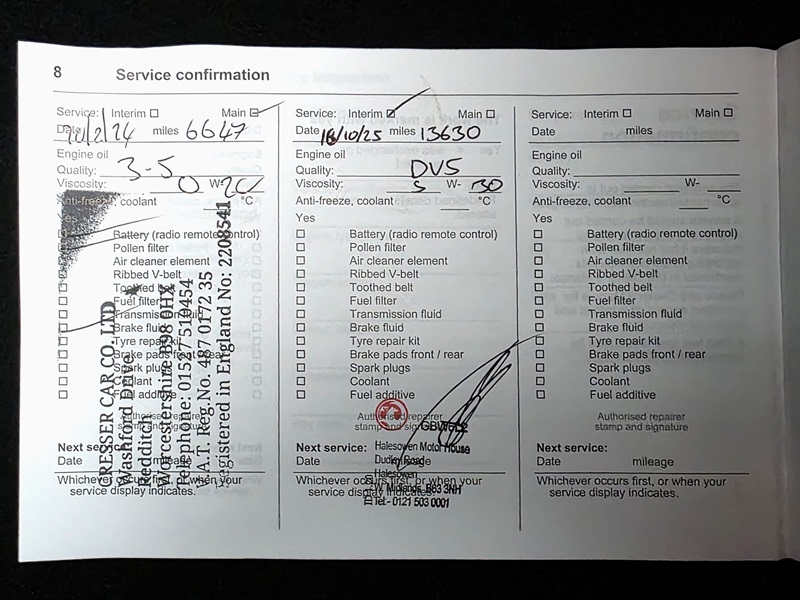 8 Service confirmation
Service: Interim Main
Date 14/2/24 miles 6647
Engine oil
Quality: 3-5
Viscosity: 0 W- 20
Anti-freeze, coolant °C
Battery (radio remote control)
Pollen filter
Air cleaner element
Ribbed V-belt
Toothed belt
Fuel filter
Transmission fluid
Brake fluid
Tyre repair kit
Brake pads front / rear
Spark plugs
Coolant
Fuel additive
Authorised repairer
stamp and signature
CRESSER CAR CO. LTD.
Washford Drive
Redditch
Worcestershire B98 0HX
Telephone: 01527 510454
V.A.T. Reg No. 487 0172 35
Registered in England No: 2208541
Next service:
Date mileage
Whichever occurs first, or when your
service display indicates.
Service: Interim Main
Date 16/10/25 miles 13630
Engine oil
Quality: DVS
Viscosity: 5 W- 30
Anti-freeze, coolant °C
Yes
Battery (radio remote control)
Pollen filter
Air cleaner element
Ribbed V-belt
Toothed belt
Fuel filter
Transmission fluid
Brake fluid
Tyre repair kit
Brake pads front / rear
Spark plugs
Coolant
Fuel additive
Authorised repairer
stamp and signature
Halesowen Motor House
Dudley Road
Halesowen
W. Midlands. B63 3NH
Tel:- 0121 503 0001
Next service:
Date mileage
Whichever occurs first, or when your
service display indicates.
Service: Interim Main
Date miles
Engine oil
Quality:
Viscosity: W-
Anti-freeze, coolant °C
Yes
Battery (radio remote control)
Pollen filter
Air cleaner element
Ribbed V-belt
Toothed belt
Fuel filter
Transmission fluid
Brake fluid
Tyre repair kit
Brake pads front / rear
Spark plugs
Coolant
Fuel additive
Authorised repairer
stamp and signature
Next service:
Date mileage
Whichever occurs first, or when your
service display indicates.